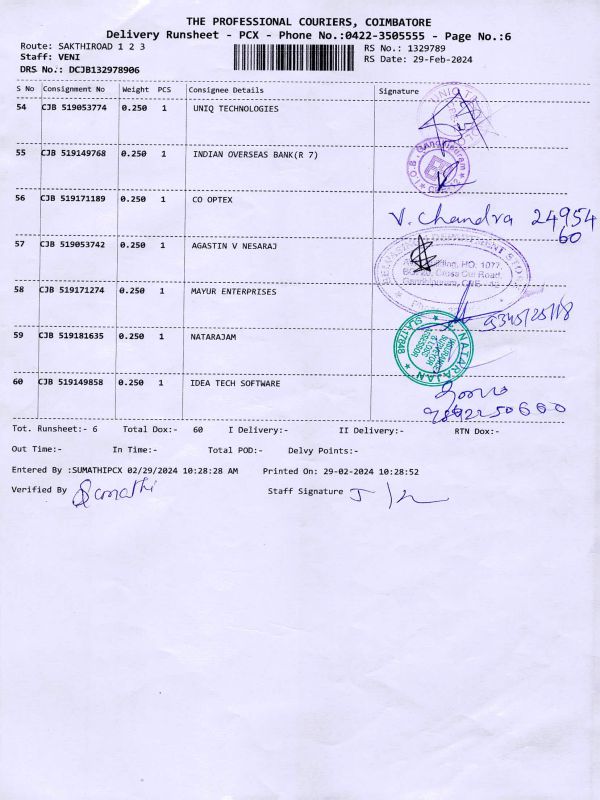 THE PROFESSIONAL COURIERS, COIMBATORE
Delivery Runsheet - PCX - Phone No.:0422-3505555 - Page No.:6
Route: SAKTHIROAD 1 2 3
RS No.: 1329789
Staff: VENI
RS Date: 29-Feb-2024
DRS No.: DCJB132978906
S No Consignment No Weight PCS Consignee Details Signature
54 CJB 519053774 0.250 1 UNIQ TECHNOLOGIES
55 CJB 519149768 0.250 1 INDIAN OVERSEAS BANK(R 7)
56 CJB 519171189 0.250 1 CO OPTEX
V. Chandra 24954
60
57 CJB 519053742 0.250 1 AGASTIN V NESARAJ
HO: 1077,
Cross Cut Road,
58 CJB 519171274 0.250 1 MAYUR ENTERPRISES
59 CJB 519181635 0.250 1 NATARAJAM
NATARAJAN
INSURANCE
SURVEYOR
& LOSS
ASSESSOR
60 CJB 519149858 0.250 1 IDEA TECH SOFTWARE
Tot. Runsheet:- 6 Total Dox:- 60 I Delivery:- II Delivery:- RTN Dox:-
Out Time:- In Time:- Total POD:- Delvy Points:-
Entered By :SUMATHIPCX 02/29/2024 10:28:28 AM Printed On: 29-02-2024 10:28:52
Verified By Sumathi Staff Signature